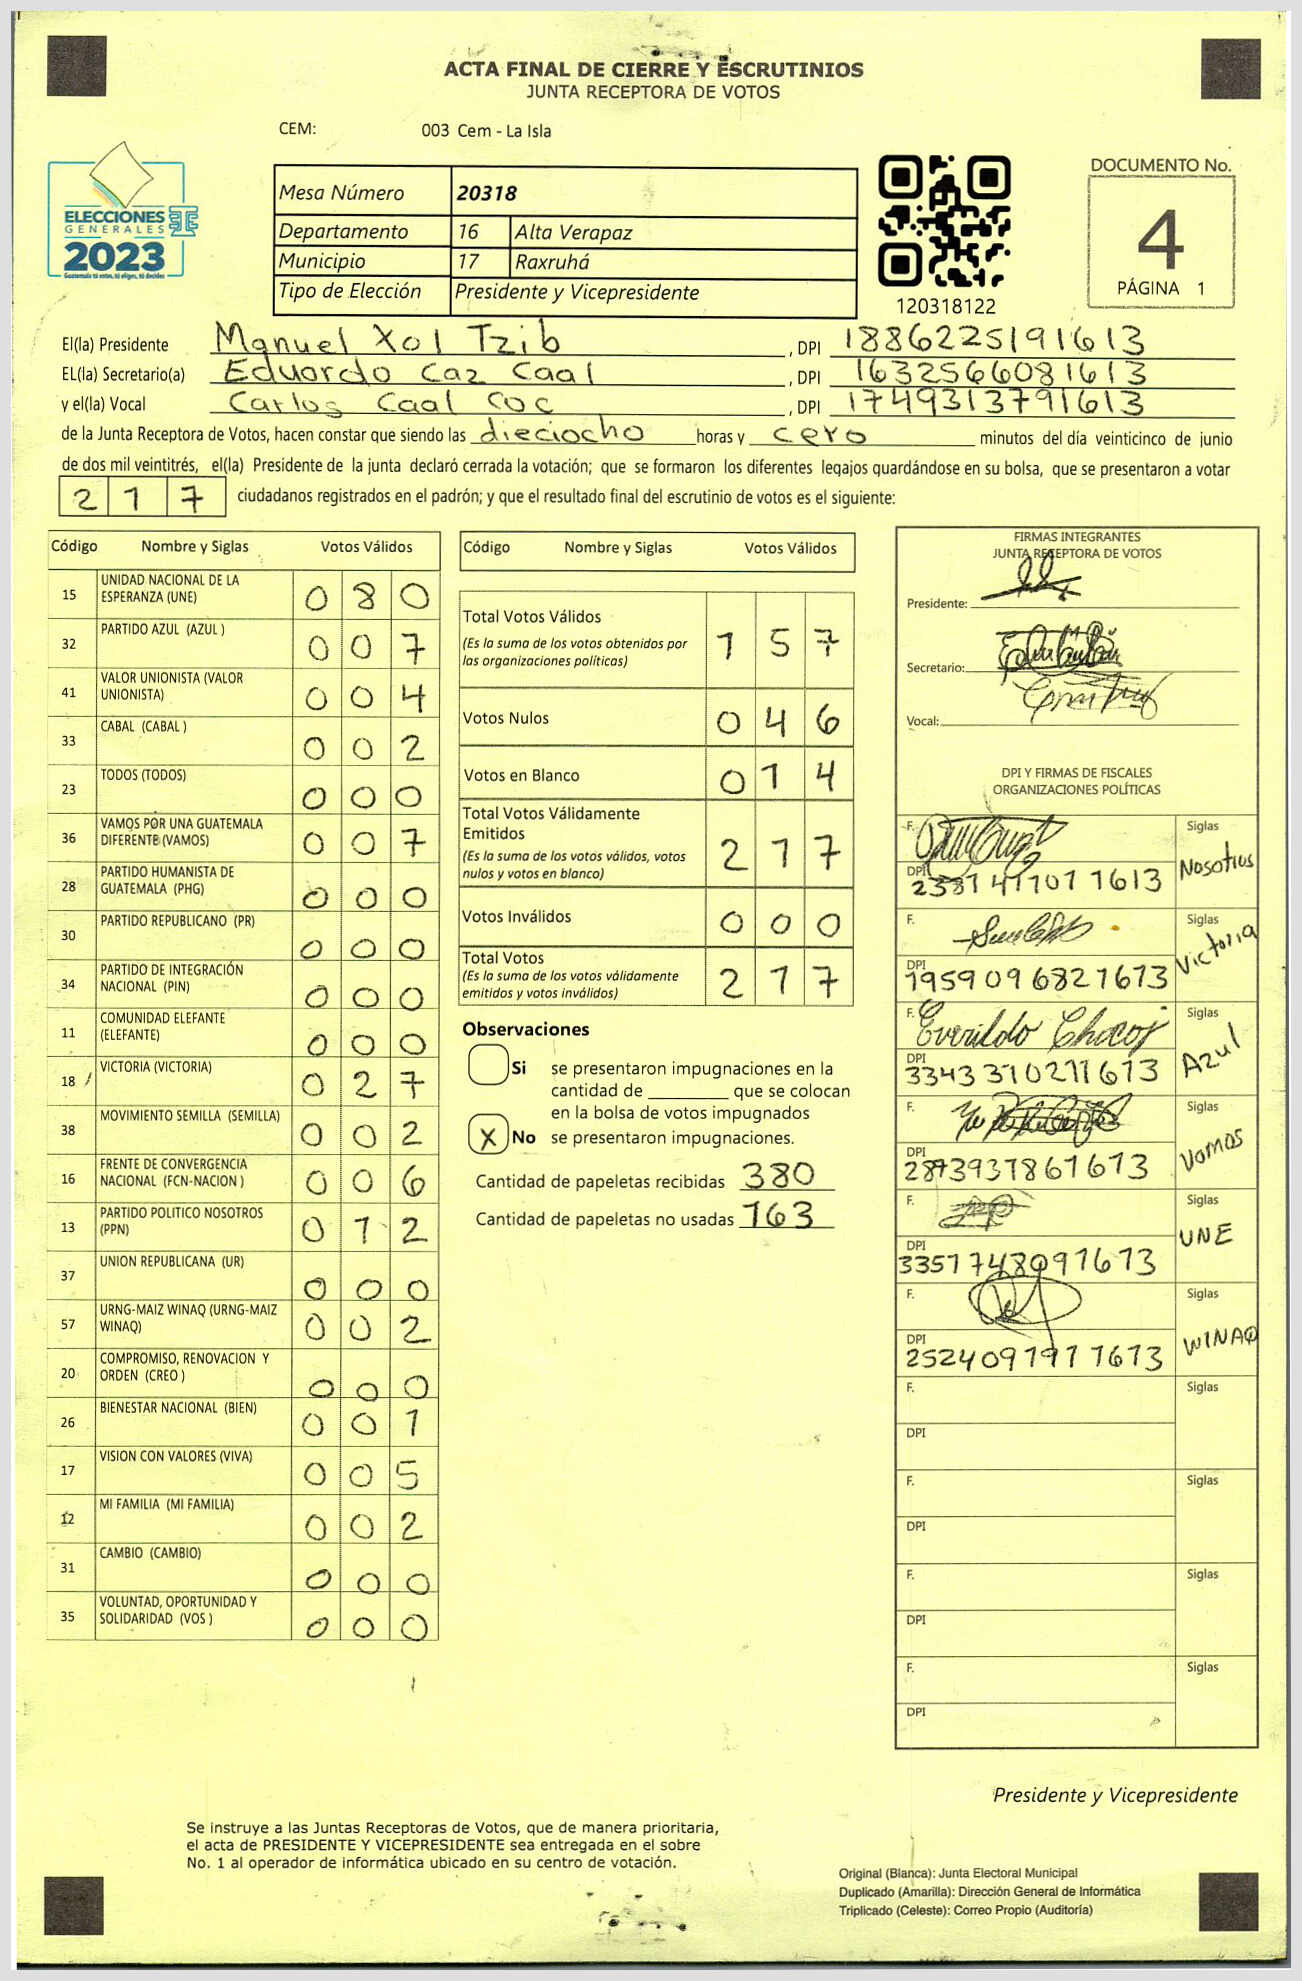 ACTA FINAL DE CIERRE Y ESCRUTINIOS
JUNTA RECEPTORA DE VOTOS
CEM: 003 Cem - La Isla
ELECCIONES
GENERALES
2023
Mesa Número 20318
Departamento 16 Alta Verapaz
Municipio 17 Raxruhá
Tipo de Elección Presidente y Vicepresidente
120318122
DOCUMENTO No.
4
PÁGINA 1
El(la) Presidente Manuel Xol Tzib , DPI 1886225191613
EL(la) Secretario(a) Eduardo Caz Caal , DPI 1632566081613
y el(la) Vocal Carlos Caal Coc , DPI 1749313791613
de la Junta Receptora de Votos, hacen constar que siendo las dieciocho horas y cero minutos del día veinticinco de junio
de dos mil veintitrés, el(la) Presidente de la junta declaró cerrada la votación; que se formaron los diferentes legajos guardándose en su bolsa, que se presentaron a votar
217 ciudadanos registrados en el padrón; y que el resultado final del escrutinio de votos es el siguiente:
Código Nombre y Siglas Votos Válidos
15 UNIDAD NACIONAL DE LA ESPERANZA (UNE) 080
32 PARTIDO AZUL (AZUL ) 007
41 VALOR UNIONISTA (VALOR UNIONISTA) 004
33 CABAL (CABAL ) 002
23 TODOS (TODOS) 000
36 VAMOS POR UNA GUATEMALA DIFERENTE (VAMOS) 007
28 PARTIDO HUMANISTA DE GUATEMALA (PHG) 000
30 PARTIDO REPUBLICANO (PR) 000
34 PARTIDO DE INTEGRACIÓN NACIONAL (PIN) 000
11 COMUNIDAD ELEFANTE (ELEFANTE) 000
18 VICTORIA (VICTORIA) 027
38 MOVIMIENTO SEMILLA (SEMILLA) 002
16 FRENTE DE CONVERGENCIA NACIONAL (FCN-NACION ) 006
13 PARTIDO POLITICO NOSOTROS (PPN) 012
37 UNION REPUBLICANA (UR) 000
57 URNG-MAIZ WINAQ (URNG-MAIZ WINAQ) 002
20 COMPROMISO, RENOVACION Y ORDEN (CREO ) 000
26 BIENESTAR NACIONAL (BIEN) 001
17 VISION CON VALORES (VIVA) 005
12 MI FAMILIA (MI FAMILIA) 002
31 CAMBIO (CAMBIO) 000
35 VOLUNTAD, OPORTUNIDAD Y SOLIDARIDAD (VOS ) 000
Código Nombre y Siglas Votos Válidos
Total Votos Válidos 157
(Es la suma de los votos obtenidos por
las organizaciones políticas)
Votos Nulos 046
Votos en Blanco 014
Total Votos Válidamente
Emitidos 217
(Es la suma de los votos válidos, votos
nulos y votos en blanco)
Votos Inválidos 000
Total Votos 217
(Es la suma de los votos válidamente
emitidos y votos inválidos)
Observaciones
Si se presentaron impugnaciones en la
cantidad de ________ que se colocan
en la bolsa de votos impugnados
X No se presentaron impugnaciones.
Cantidad de papeletas recibidas 380
Cantidad de papeletas no usadas 163
FIRMAS INTEGRANTES
JUNTA RECEPTORA DE VOTOS
Presidente:
Secretario:
Vocal:
DPI Y FIRMAS DE FISCALES
ORGANIZACIONES POLÍTICAS
F. Siglas
DPI Nosotros
F. Siglas
DPI 1959096821613 Victoria
F. Everildo Chocoj Siglas
DPI 3343310211613 Azul
F. Siglas
DPI Vamos
F. Siglas
DPI 3351748091613 UNE
F. Siglas
DPI 2524097911613 WINAQ
F. Siglas
DPI
F. Siglas
DPI
F. Siglas
DPI
F. Siglas
DPI
Presidente y Vicepresidente
Se instruye a las Juntas Receptoras de Votos, que de manera prioritaria,
el acta de PRESIDENTE Y VICEPRESIDENTE sea entregada en el sobre
No. 1 al operador de informática ubicado en su centro de votación.
Original (Blanca): Junta Electoral Municipal
Duplicado (Amarilla): Dirección General de Informática
Triplicado (Celeste): Correo Propio (Auditoría)